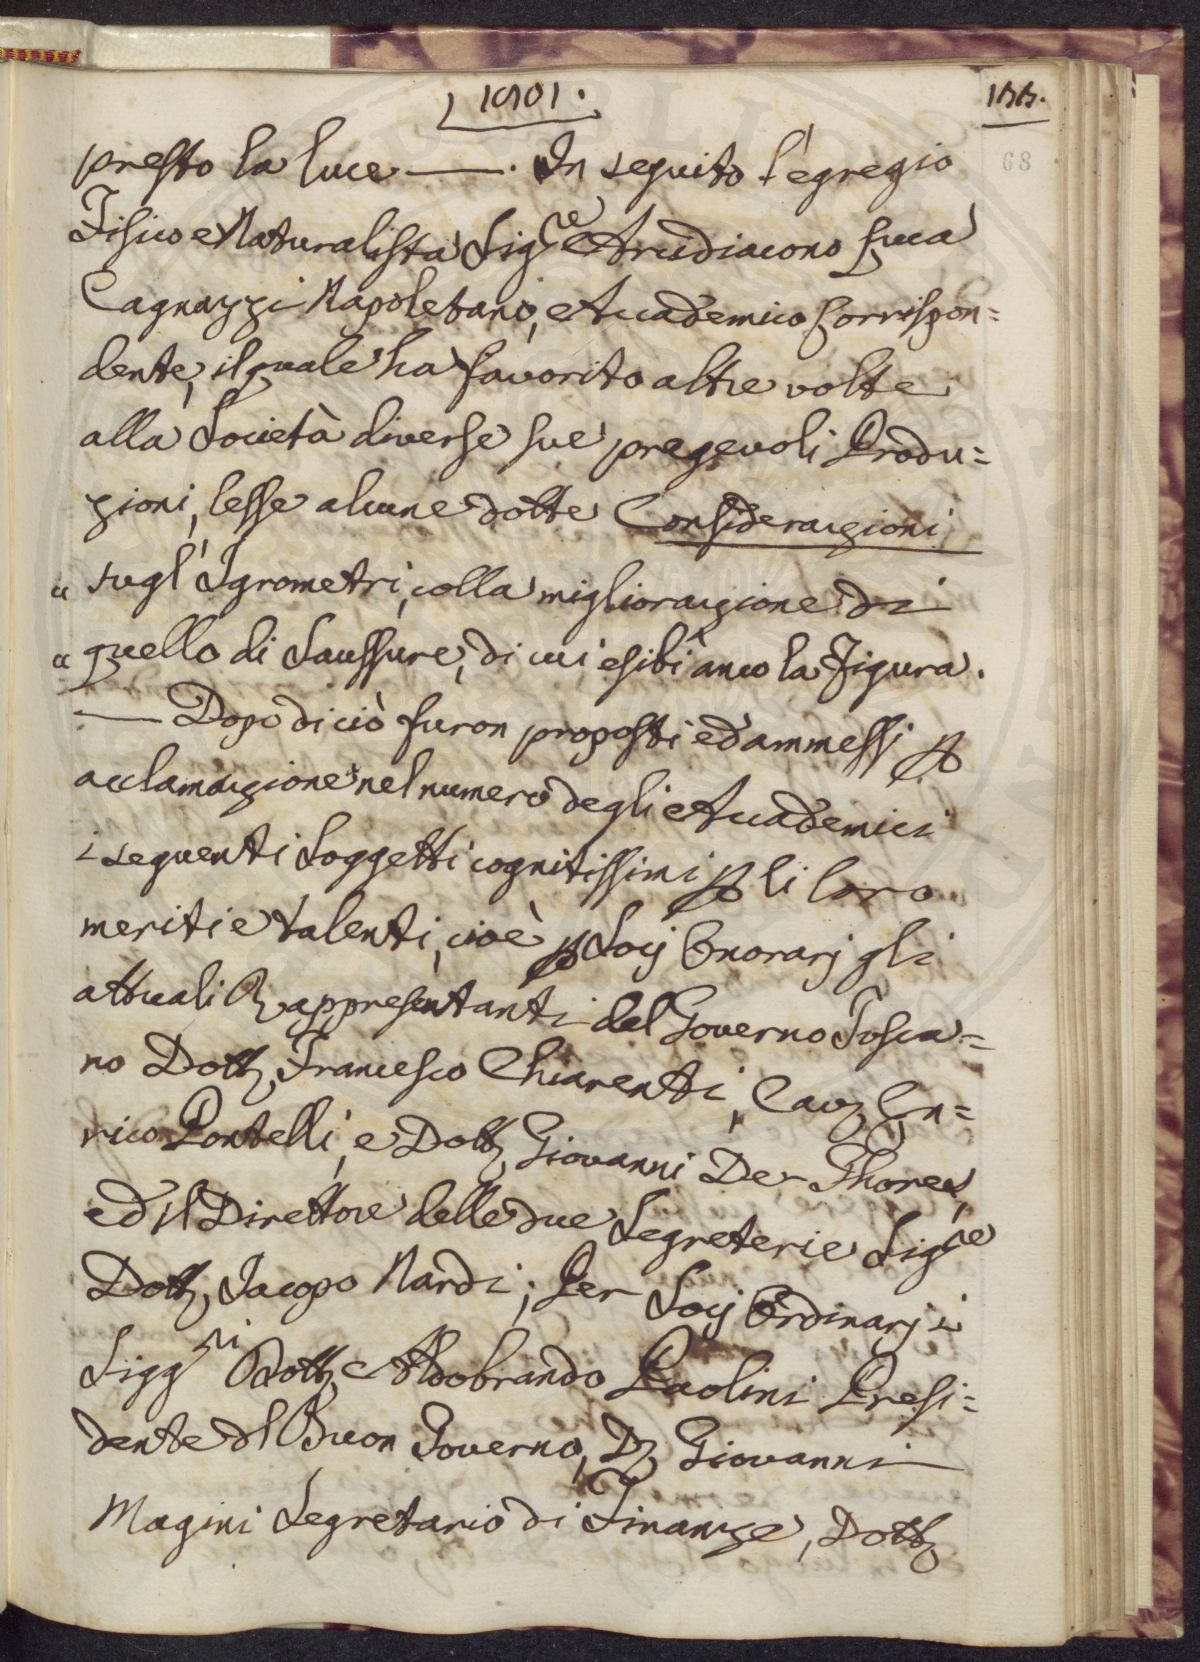 1801.
155.
68
presto la luce ——. In seguito l'egregio
Fisico e Naturalista Sig.re Arcidiacono Luca
Cagnazzi Napoletano, Accademico Corrispon=
dente, il quale ha favorito altre volte
alla Società diverse sue pregevoli Produ=
zioni, lesse alcune dotte Considerazioni
" sugl'Igrometri, colla migliorazione di
" quello di Saussure, di cui esibì anco la Figura.
—— Dopo di ciò furon proposti ed ammessi p
acclamazione nel numero degli Accademici
i seguenti Soggetti cognitissimi p li loro
meriti e talenti, cioè p Socij Onorarj gli
attuali Rappresentanti del Governo Tosca=
no Dott. Francesco Chiarenti, Cav. En=
rico Pontelli, e Dott. Giovanni De Ghores,
ed il Direttore delle due Segreterie Sig.re
Dott. Jacopo Nardi; Per Socij Ordinarj i
Sigg.ri Dott. Aldobrando Paolini Presi=
dente dl Buon Governo, D. Giovanni
Magini Segretario di Finanze, Dott.